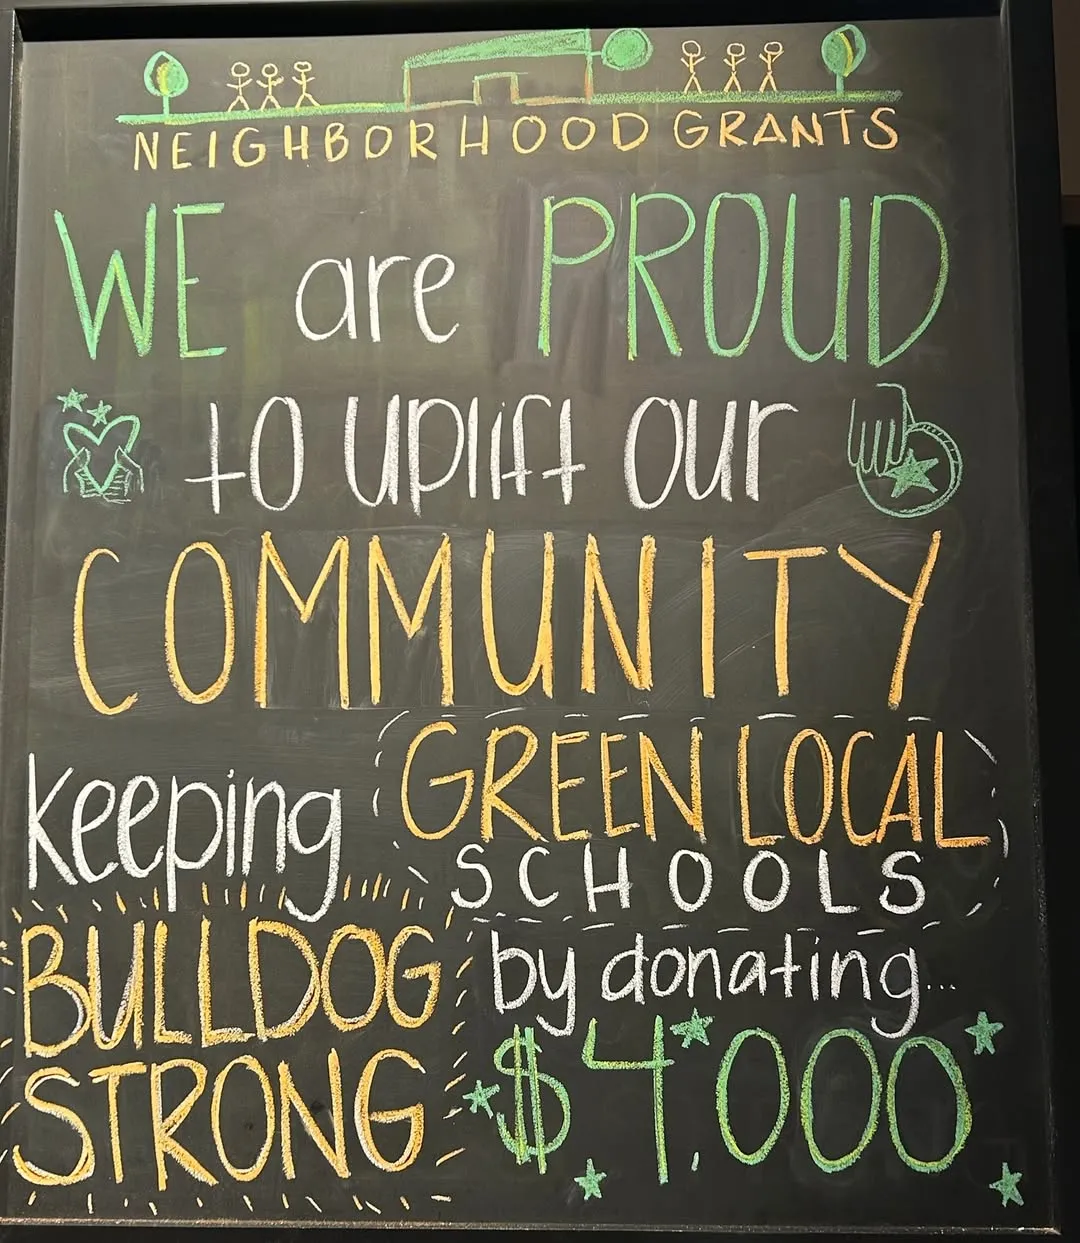 NEIGHBORHOOD GRANTS
WE are PROUD
to uplift our
COMMUNITY
keeping GREEN LOCAL
SCHOOLS
BULLDOG
STRONG
by donating...
$4,000